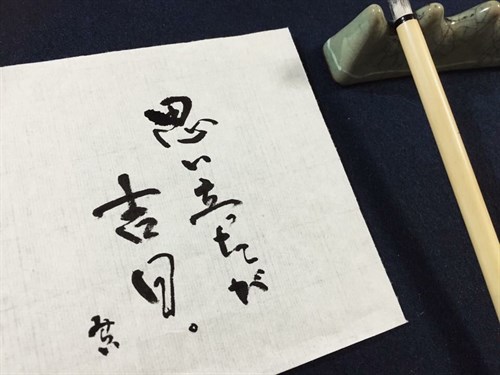 思い立ったが
吉日。